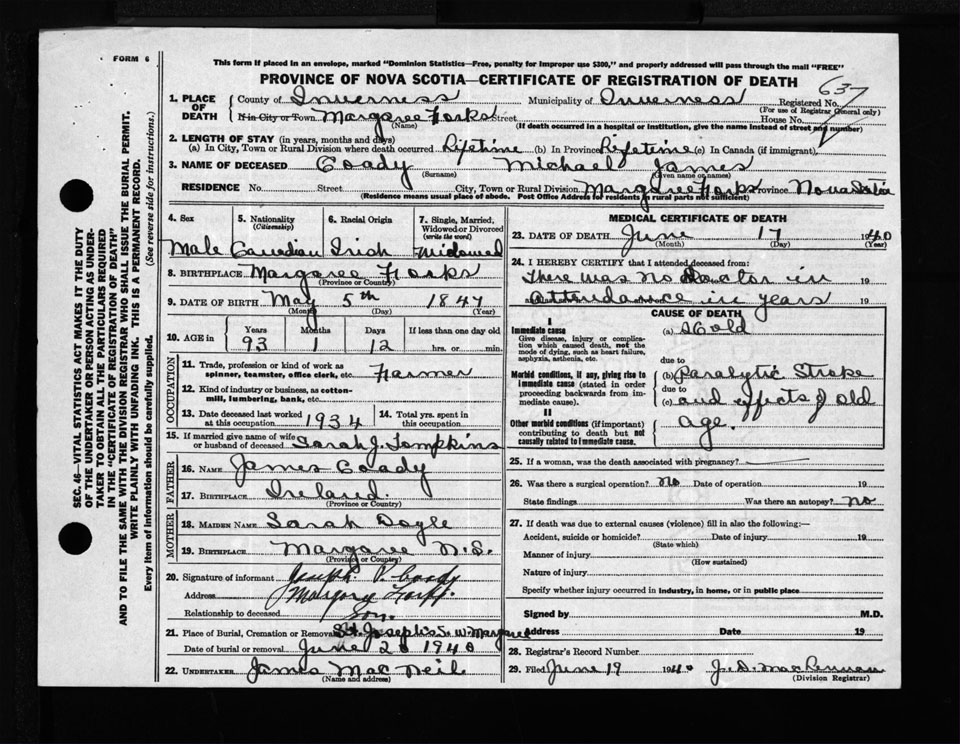 FORM 6
This form if placed in an envelope, marked "Dominion Statistics—Free, penalty for improper use $300," and properly addressed will pass through the mail "FREE"
PROVINCE OF NOVA SCOTIA—CERTIFICATE OF REGISTRATION OF DEATH
637
1. PLACE OF DEATH County of Inverness Municipality of Inverness Registered No.
(For use of Registrar General only)
If in City or Town Margaree Forks Street House No.
(Name) (If death occurred in a hospital or institution, give the name instead of street and number)
2. LENGTH OF STAY (in years, months and days)
(a) In City, Town or Rural Division where death occurred Lifetime (b) In Province Lifetime (c) In Canada (if immigrant)
3. NAME OF DECEASED Coady Michael James
(Surname) (Given name or names)
RESIDENCE No. Street City, Town or Rural Division Margaree Forks Province Nova Scotia
(Residence means usual place of abode. Post Office Address for residents in rural parts not sufficient)
4. Sex 5. Nationality (Citizenship) 6. Racial Origin 7. Single, Married, Widowed or Divorced (write the word)
Male Canadian Irish Widowed
8. BIRTHPLACE Margaree Forks
(Province or Country)
9. DATE OF BIRTH May 5th 1847
(Month) (Day) (Year)
10. AGE in Years Months Days If less than one day old
93 1 12 hrs. or min.
OCCUPATION
11. Trade, profession or kind of work as spinner, teamster, office clerk, etc. Farmer
12. Kind of industry or business, as cotton-mill, lumbering, bank, etc.
13. Date deceased last worked at this occupation 1934 14. Total yrs. spent in this occupation
15. If married give name of wife or husband of deceased Sarah J. Tompkins
FATHER
16. NAME James Coady
17. BIRTHPLACE Ireland.
(Province or Country)
MOTHER
18. MAIDEN NAME Sarah Doyle
19. BIRTHPLACE Margaree N.S.
(Province or Country)
20. Signature of informant Joseph P. Coady
Address
Relationship to deceased Son.
21. Place of Burial, Cremation or Removal St. Joseph's S. W. Margaree
Date of burial or removal June 20 1940
22. UNDERTAKER James MacNeil
(Name and address)
MEDICAL CERTIFICATE OF DEATH
23. DATE OF DEATH June 17 1940
(Month) (Day) (Year)
24. I HEREBY CERTIFY that I attended deceased from:
There was no Doctor in 19
attendance in years 19
CAUSE OF DEATH
I
Immediate cause (a) Cold
Give disease, injury or complication which caused death, not the mode of dying, such as heart failure, asphyxia, asthenia, etc.
due to
Morbid conditions, if any, giving rise to immediate cause (stated in order proceeding backwards from immediate cause). (b) Paralytic Stroke
due to
(c) and effects of old
age.
II
Other morbid conditions (if important) contributing to death but not causally related to immediate cause.
25. If a woman, was the death associated with pregnancy?
26. Was there a surgical operation? No Date of operation 19
State findings Was there an autopsy? No
27. If death was due to external causes (violence) fill in also the following:—
Accident, suicide or homicide? Date of injury 19
(State which)
Manner of injury
(How sustained)
Nature of injury
Specify whether injury occurred in industry, in home, or in public place
Signed by M.D.
Address Date 19
28. Registrar's Record Number
29. Filed June 19 1940 J. D. MacLennan
(Division Registrar)
SEC. 46—VITAL STATISTICS ACT MAKES IT THE DUTY
OF THE UNDERTAKER OR PERSON ACTING AS UNDER-
TAKER TO OBTAIN ALL THE PARTICULARS REQUIRED
IN THE "CERTIFICATE OF REGISTRATION OF DEATH"
AND TO FILE THE SAME WITH THE DIVISION REGISTRAR WHO SHALL ISSUE THE BURIAL PERMIT.
WRITE PLAINLY WITH UNFADING INK. THIS IS A PERMANENT RECORD.
Every item of Information should be carefully supplied. (See reverse side for instructions.)